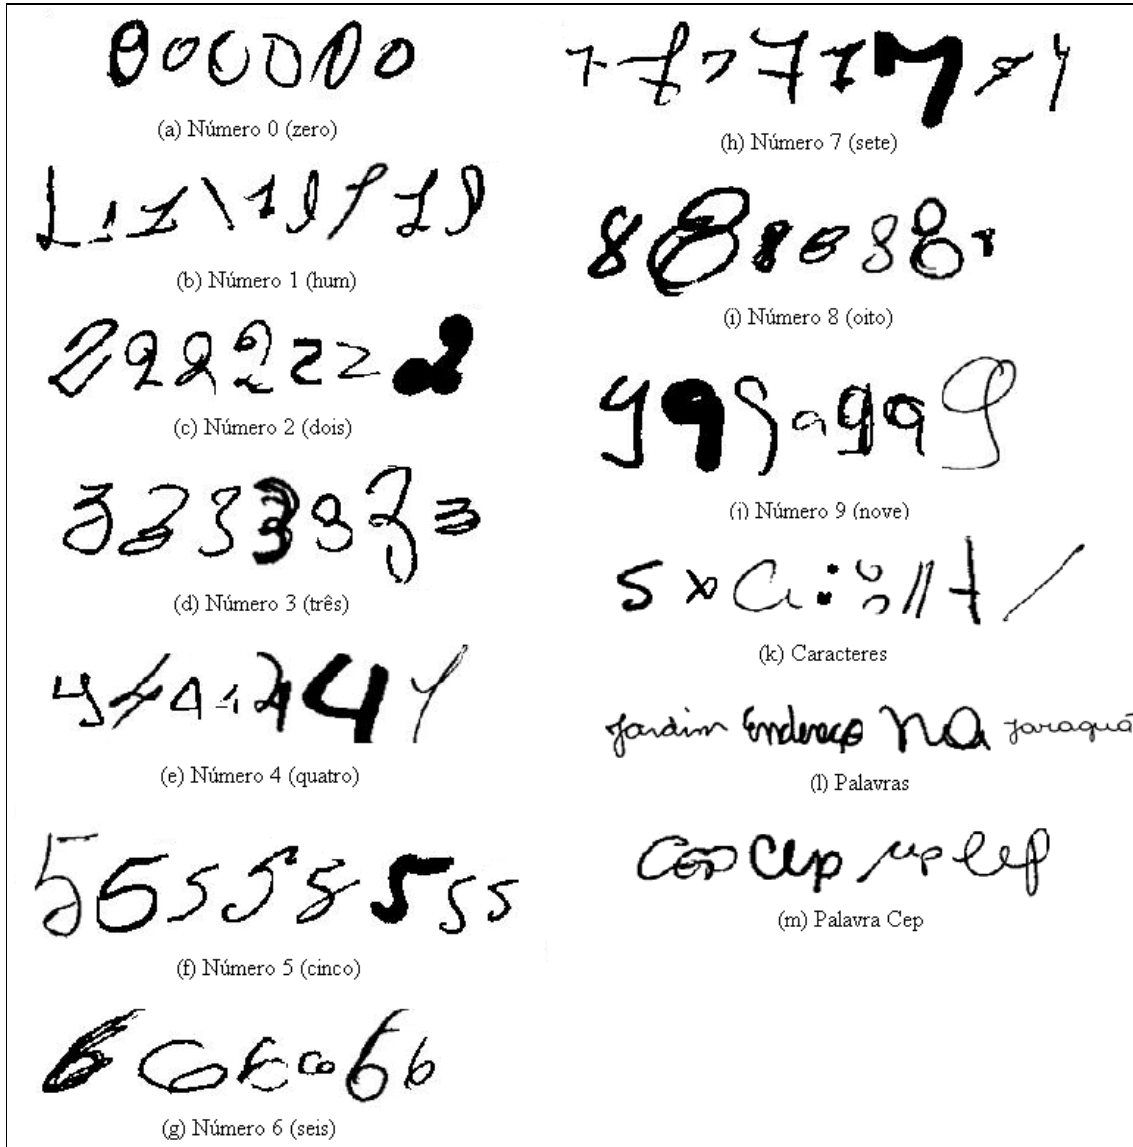 000000
(a) Número 0 (zero)
111111111
(b) Número 1 (hum)
2222222
(c) Número 2 (dois)
3333333
(d) Número 3 (três)
4444444
(e) Número 4 (quatro)
55555555
(f) Número 5 (cinco)
666666
(g) Número 6 (seis)
77777777
(h) Número 7 (sete)
8888888
(i) Número 8 (oito)
9999999
(j) Número 9 (nove)
(k) Caracteres
Jardim Endereço na Jaraguá
(l) Palavras
Cep Cep Cep
(m) Palavra Cep